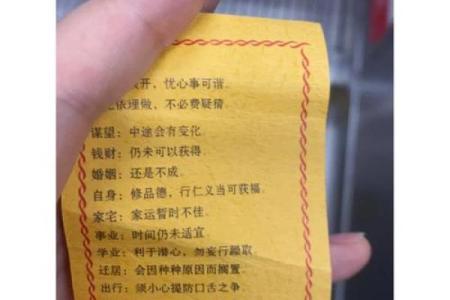 开，忧心事可谐。
依理做，不必费疑猜。
谋望：中途会有变化。
钱财：仍未可以获得。
婚姻：还是不成。
自身：修品德，行仁义当可获福。
家宅：家运暂时不佳。
事业：时间仍未适宜
学业：利于潜心，勿妄行躁取
迁居：会因种种原因而搁置。
出行：须小心提防口舌之争。